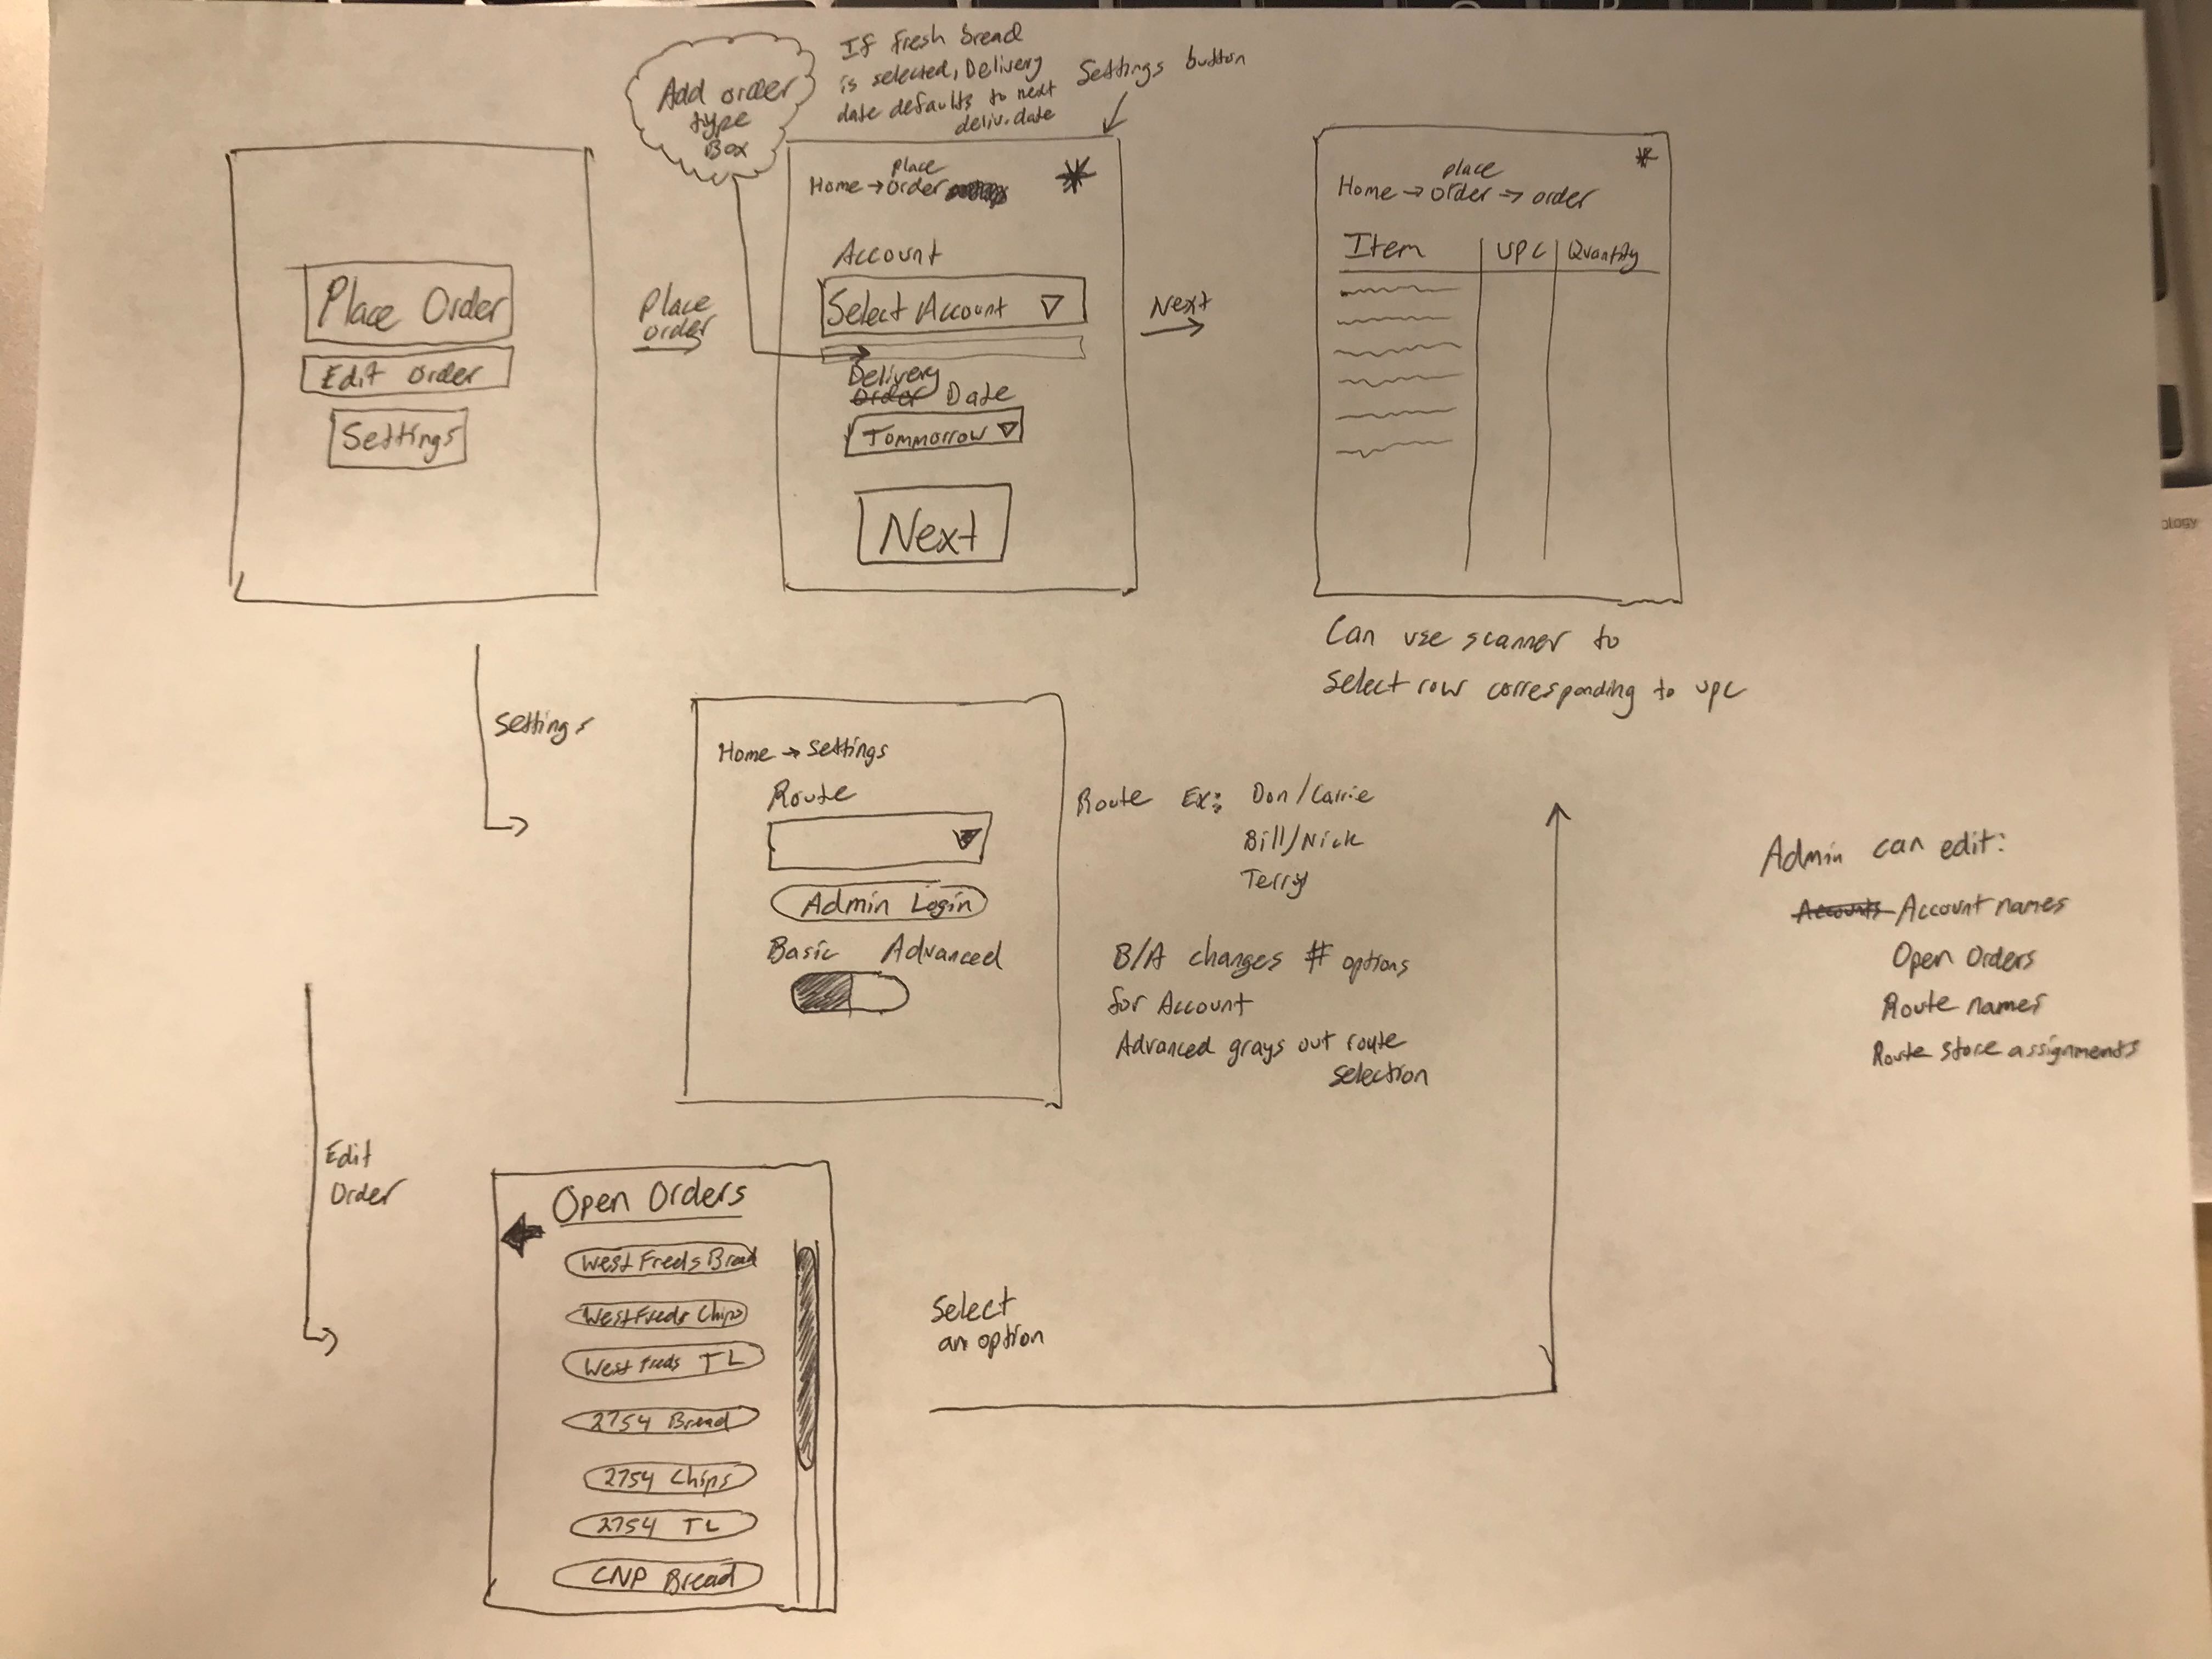 Add order
type
Box
If fresh bread
is selected, Delivery
date defaults to next
deliv. date
Settings button
Place Order
Edit order
Settings
Place
order
Home → Place order
Account
Select Account
Delivery
Order Date
Tommorrow
Next
Next
Home → place order → order
Item UPC Quantity
Can use scanner to
select row corresponding to upc
Settings
Home → Settings
Route
Admin Login
Basic Advanced
Route Ex: Don/Carrie
Bill/Nick
Terry
B/A changes # options
for Account
Advanced grays out route
selection
Admin can edit:
Accounts Account names
Open Orders
Route names
Route store assignments
Edit
Order
Open Orders
West Freds Bread
West Freds Chips
West Freds TL
2754 Bread
2754 Chips
2754 TL
CNP Bread
Select
an option
ology